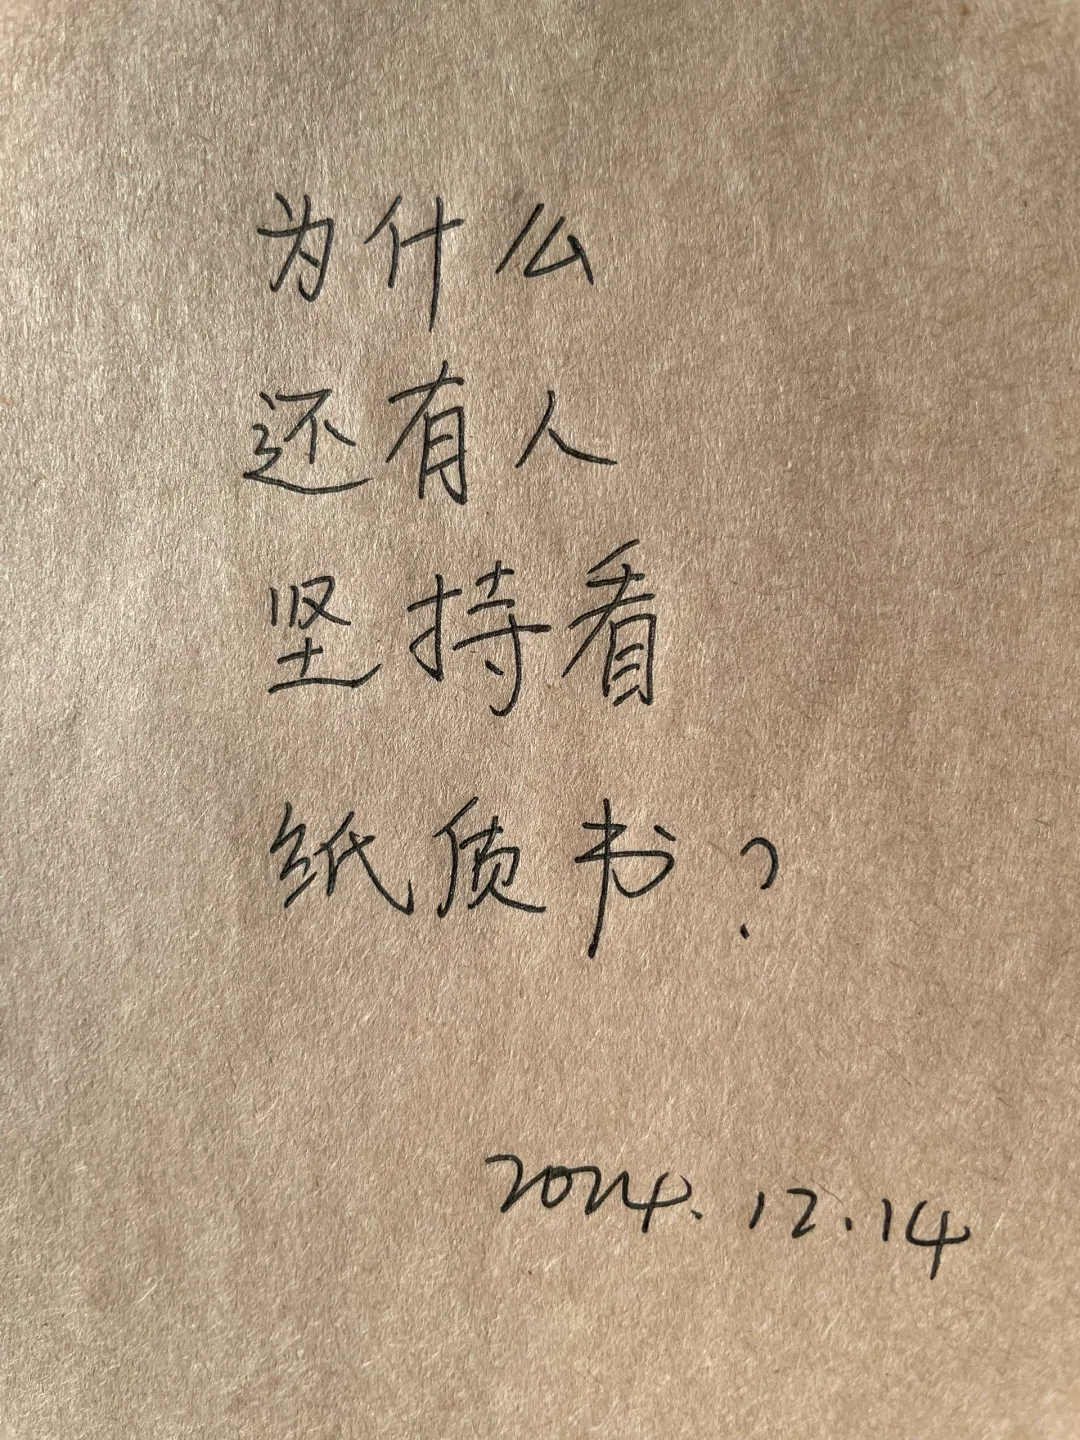 为什么
还有人
坚持看
纸质书?
2024.12.14